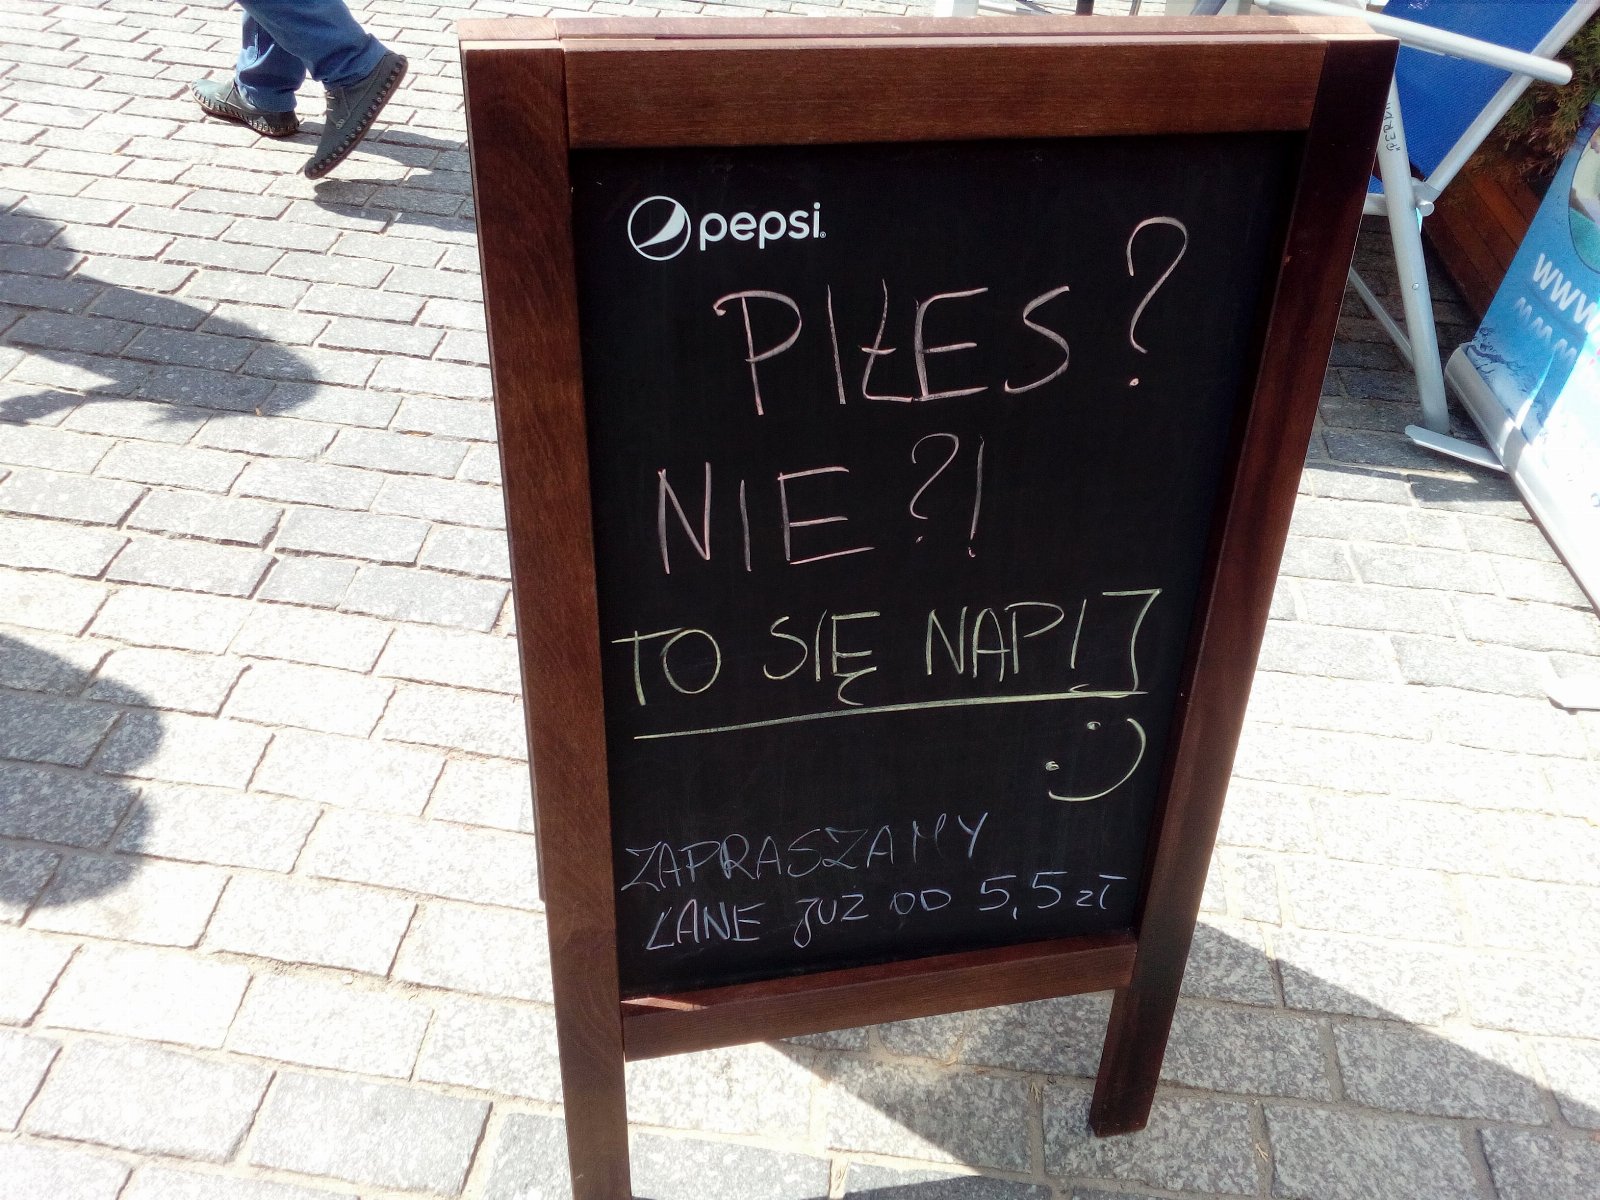 pepsi
PIŁEŚ?
NIE?!
TO SIĘ NAPIJ
:)
ZAPRASZAMY
LANE JUŻ OD 5,5 zł
www